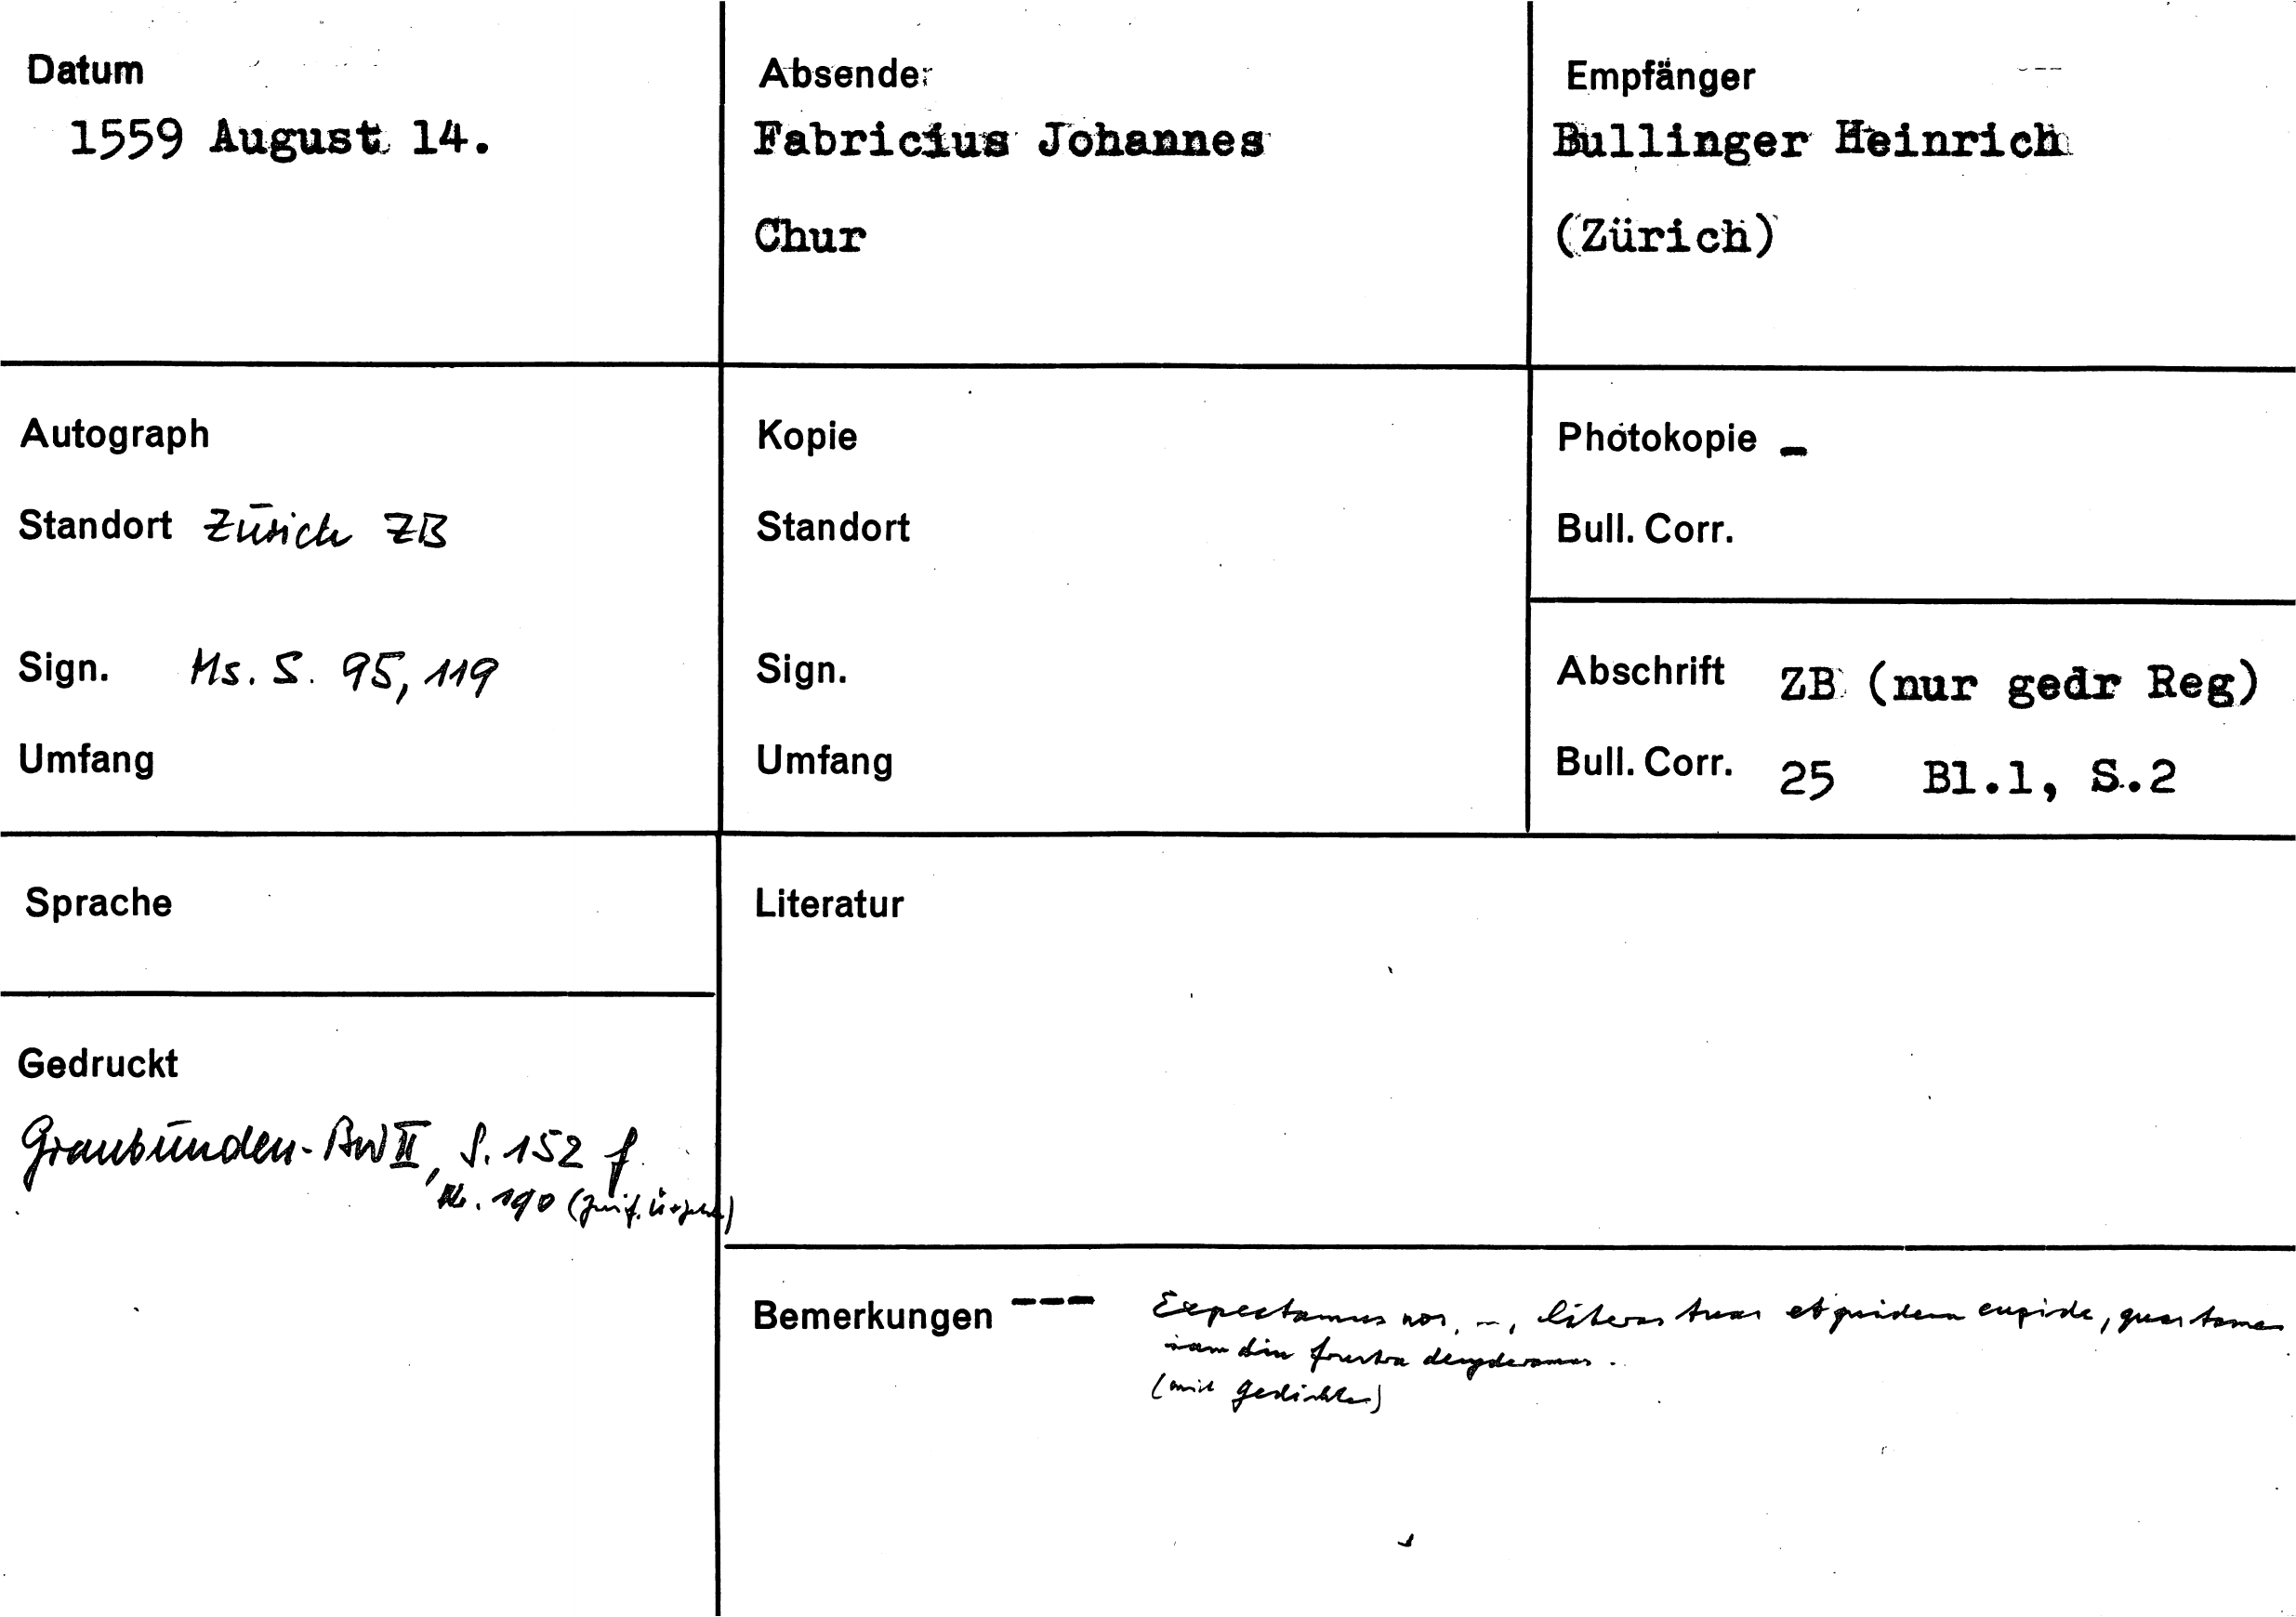 Datum
1559 August 14.
Absender
Fabricius Johannes
Chur
Empfänger
Bullinger Heinrich
(Zürich)
Autograph
Standort Zürich ZB
Sign. Ms. S. 95, 119
Umfang
Kopie
Standort
Sign.
Umfang
Photokopie -
Bull. Corr.
Abschrift ZB (nur gedr Reg)
Bull. Corr. 25 Bl.1, S.2
Sprache
Gedruckt
Graubünden-BW II, S. 152 f
Nr. 190
Literatur
Bemerkungen --- Expectamus nos, -, literas tuas et quidem cupide, quas tamen
iam diu frustra desyderamus.
(mit Gedichten)